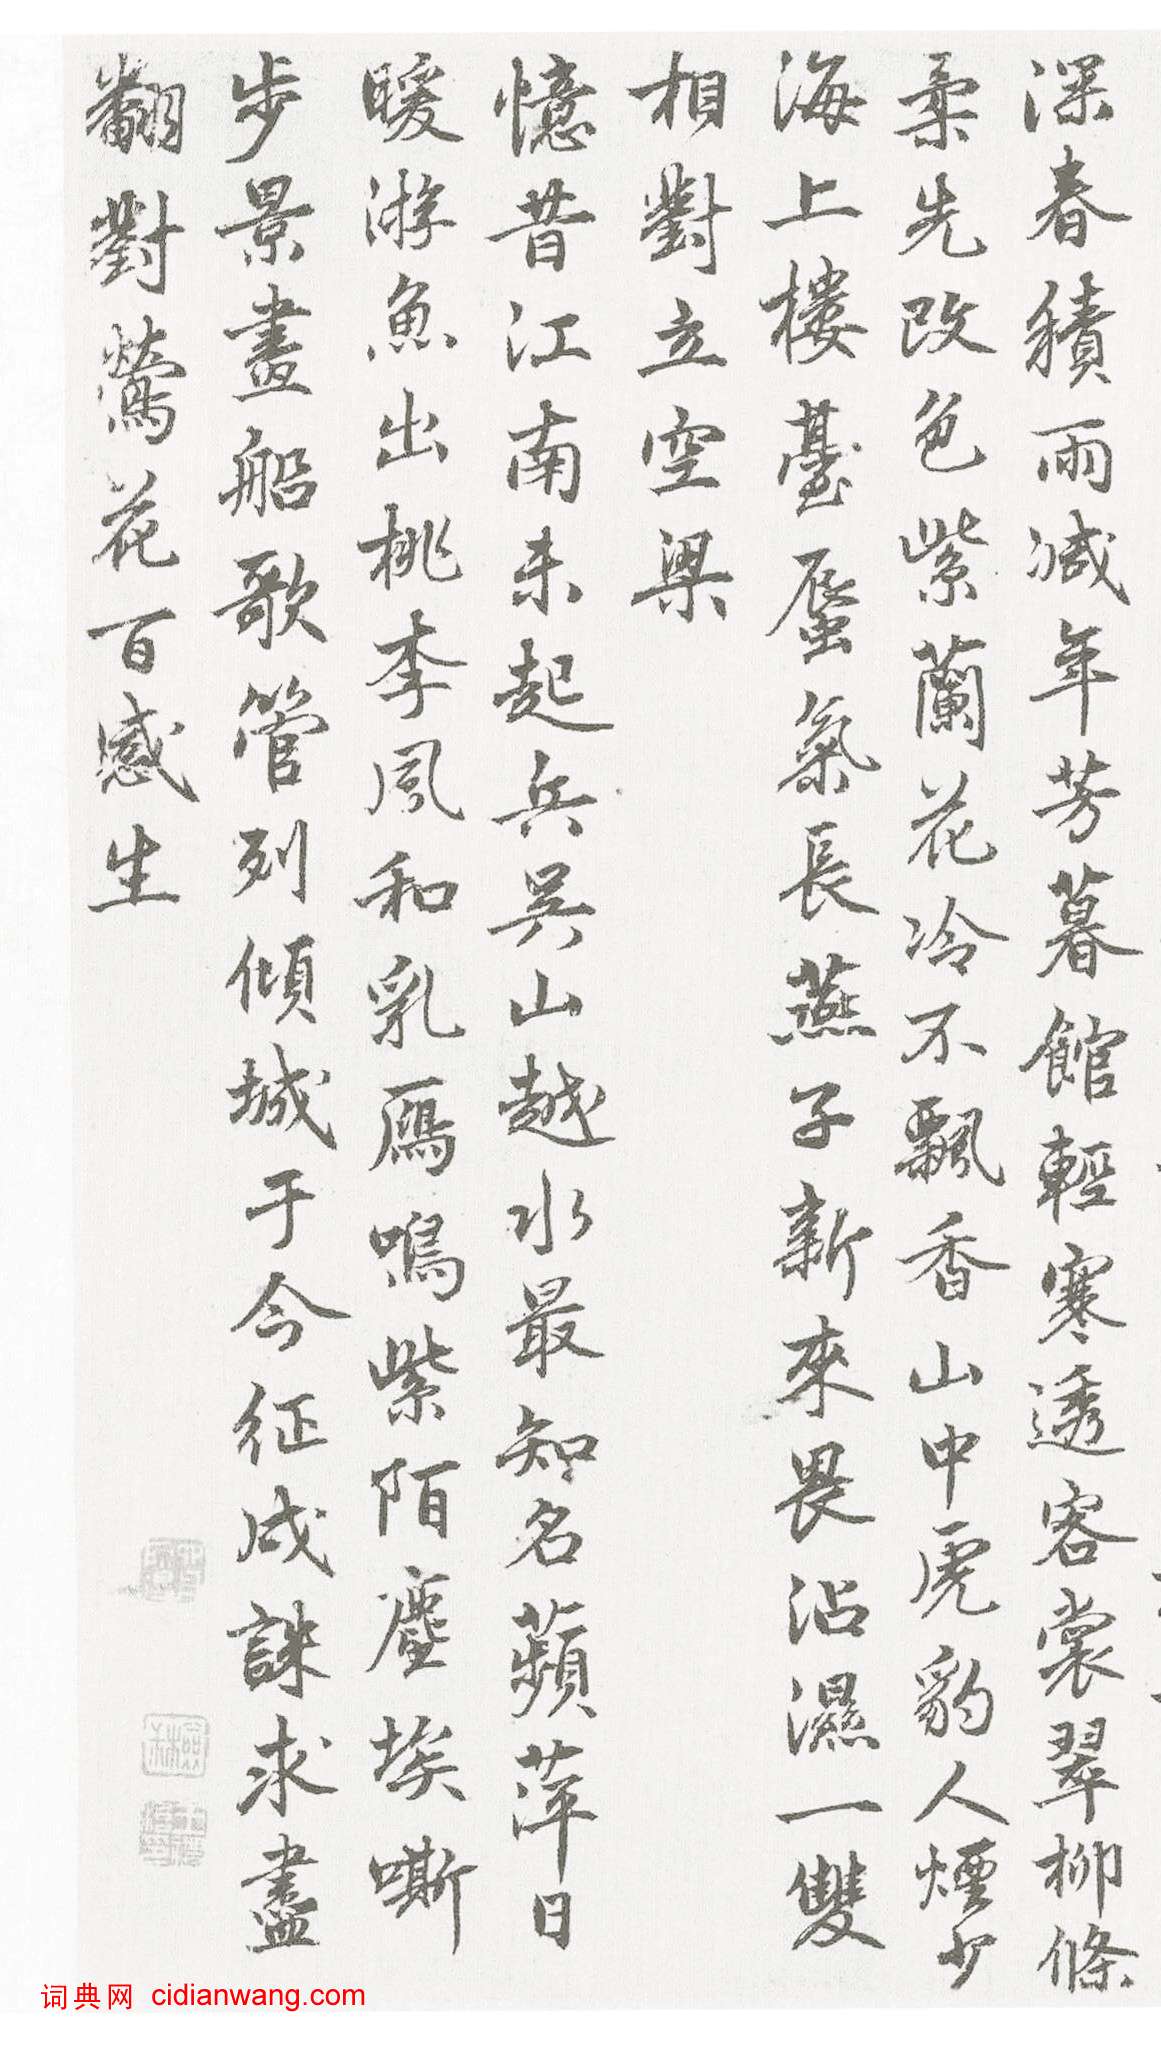 深春積雨減年芳暮館輕寒透客裳翠柳條
柔先改色紫蘭花冷不飄香山中虎豹人煙少
海上樓臺蜃氣長燕子新來畏沾濕一雙
相對立空梁
憶昔江南未起兵吳山越水最知名蘋萍日
暖游魚出桃李風和乳鴈鳴紫陌塵埃嘶
步景畫船歌管列傾城于今征戍誅求盡
翻對鶯花百感生
词典网 cidianwang.com